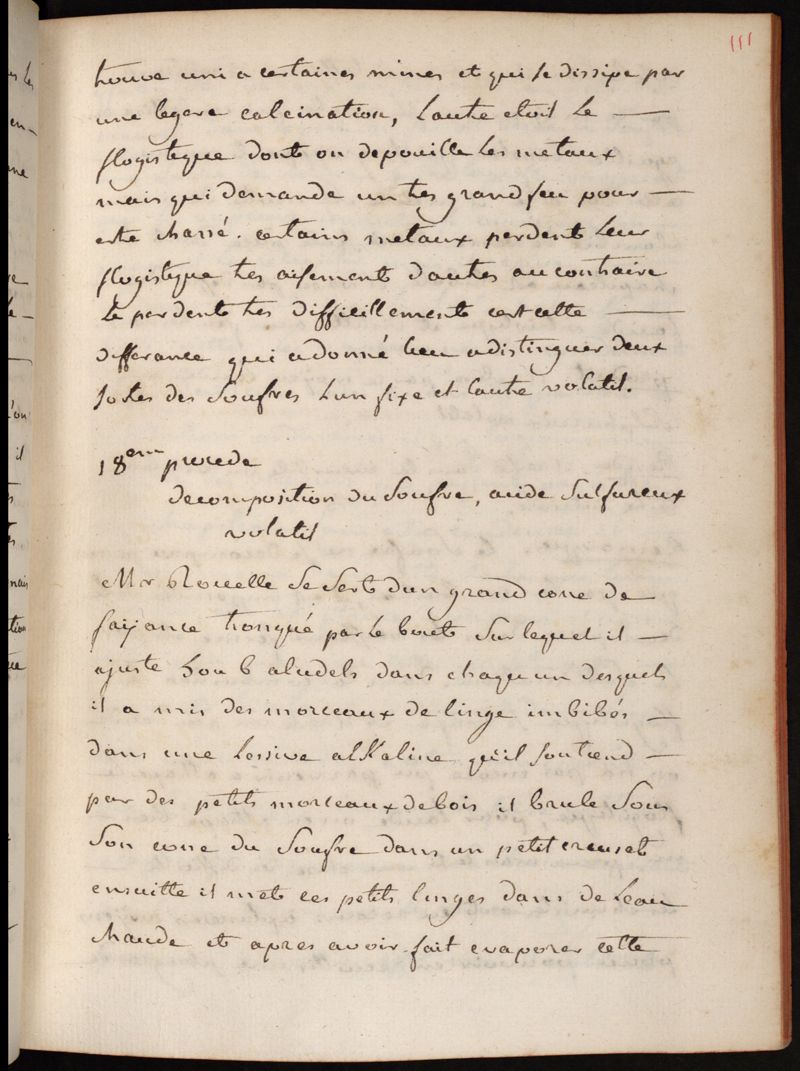 111
trouve uni a certaines mines et qui se dissipe par
une legere calcination, Lautre etoit Le —
flogistique dont on depouille Les metaux
mais qui demande un tres grand feu pour —
estre chassé. certains metaux perdent Leur
flogistique tres aisement dautres au contraire
Le perdent tres difficillement cest cette —
differance qui a donné lieu a distinguer deux
sortes des Soufres Lun fixe et lautre volatil.
18em procede
decomposition du Soufre, acide Sulfureux
volatil
Mr Rouelle Se Sert dun grand cone de
fayance tronqué par Le bout Sur lequel il —
ajuste 5 ou 6 aludels dans chaqu un desquels
il a mis des morceaux de linge imbibés —
dans une Lessive alkaline qu'il soutiend —
par des petits morceaux de bois il brule Sous
Son cone du Soufre dans un petit creuset
ensuitte il met ces petits linges dans de Leau
chaude et apres avoir fait evaporer cette